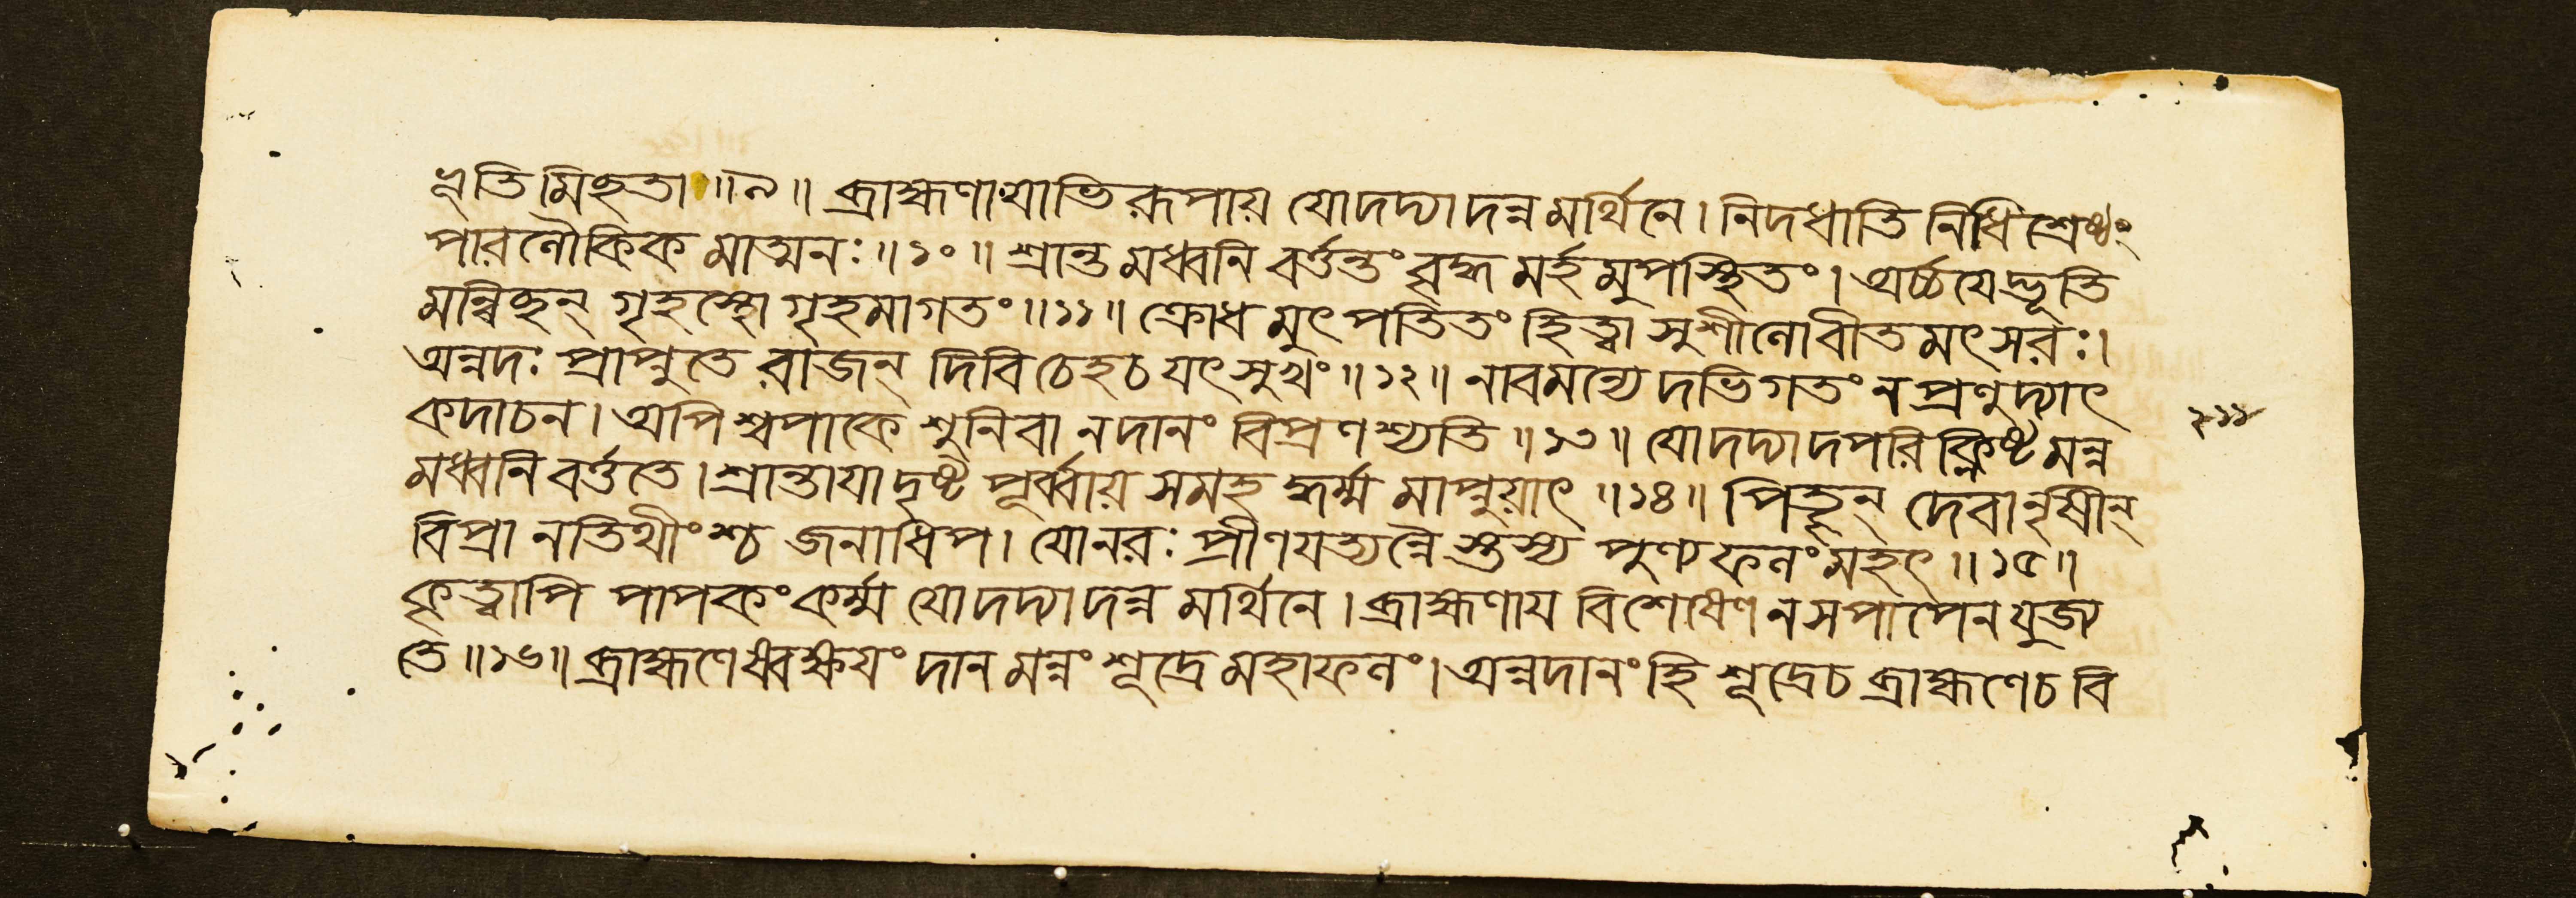 প্নুতিমিছতা ॥ ৯ ॥ ব্রাহ্মণাযাভিরূপায় যোদদ্যাদন্নমর্থিনে। নিদধাতি নিধিং শ্রেষ্ঠং
পারলৌকিকমাত্মনঃ ॥ ১০ ॥ শ্রান্তমধ্বনি বর্ত্তন্তং বৃদ্ধমর্হমুপস্থিতং। অর্চ্চযেদ্ভূতি
মন্বিছন্ গৃহস্থো গৃহমাগতং ॥ ১১ ॥ ক্রোধমুৎপতিতং হিত্বা সুশীলোবীতমৎসরঃ।
অন্নদঃ প্রাপ্নুতে রাজন্ দিবি চেহচ যৎসুখং ॥ ১২ ॥ নাবমন্যেদভিগতং নপ্রণুদ্যাৎ
কদাচন। অপিশ্বপাকে শুনিবা নদানং বিপ্রণশ্যতি ॥ ১৩ ॥ যোদদ্যাদপরিক্লিষ্টমন্ন
মধ্বনি বর্ত্ততে। শ্রান্তাযাদৃষ্টপূর্ব্বায় সমহদ্ধর্ম্মমাপ্নুয়াৎ ॥ ১৪ ॥ পিতৄন্ দেবানৃষীন্
বিপ্রানতিথীংশ্চ জনাধিপ। যোনরঃ প্রীণযত্যন্নৈস্তস্য পুণ্যফলং মহৎ ॥ ১৫ ॥
কৃত্বাপি পাপকংকর্ম্ম যোদদ্যাদন্নমর্থিনে। ব্রাহ্মণায বিশেষেণ নসপাপেনযুজ্য
তে ॥ ১৬ ॥ ব্রাহ্মণেষ্বক্ষযং দানমন্নং শূদ্রেমহাফলং। অন্নদানংহি শূদ্রেচ ব্রাহ্মণেচবি
২১১